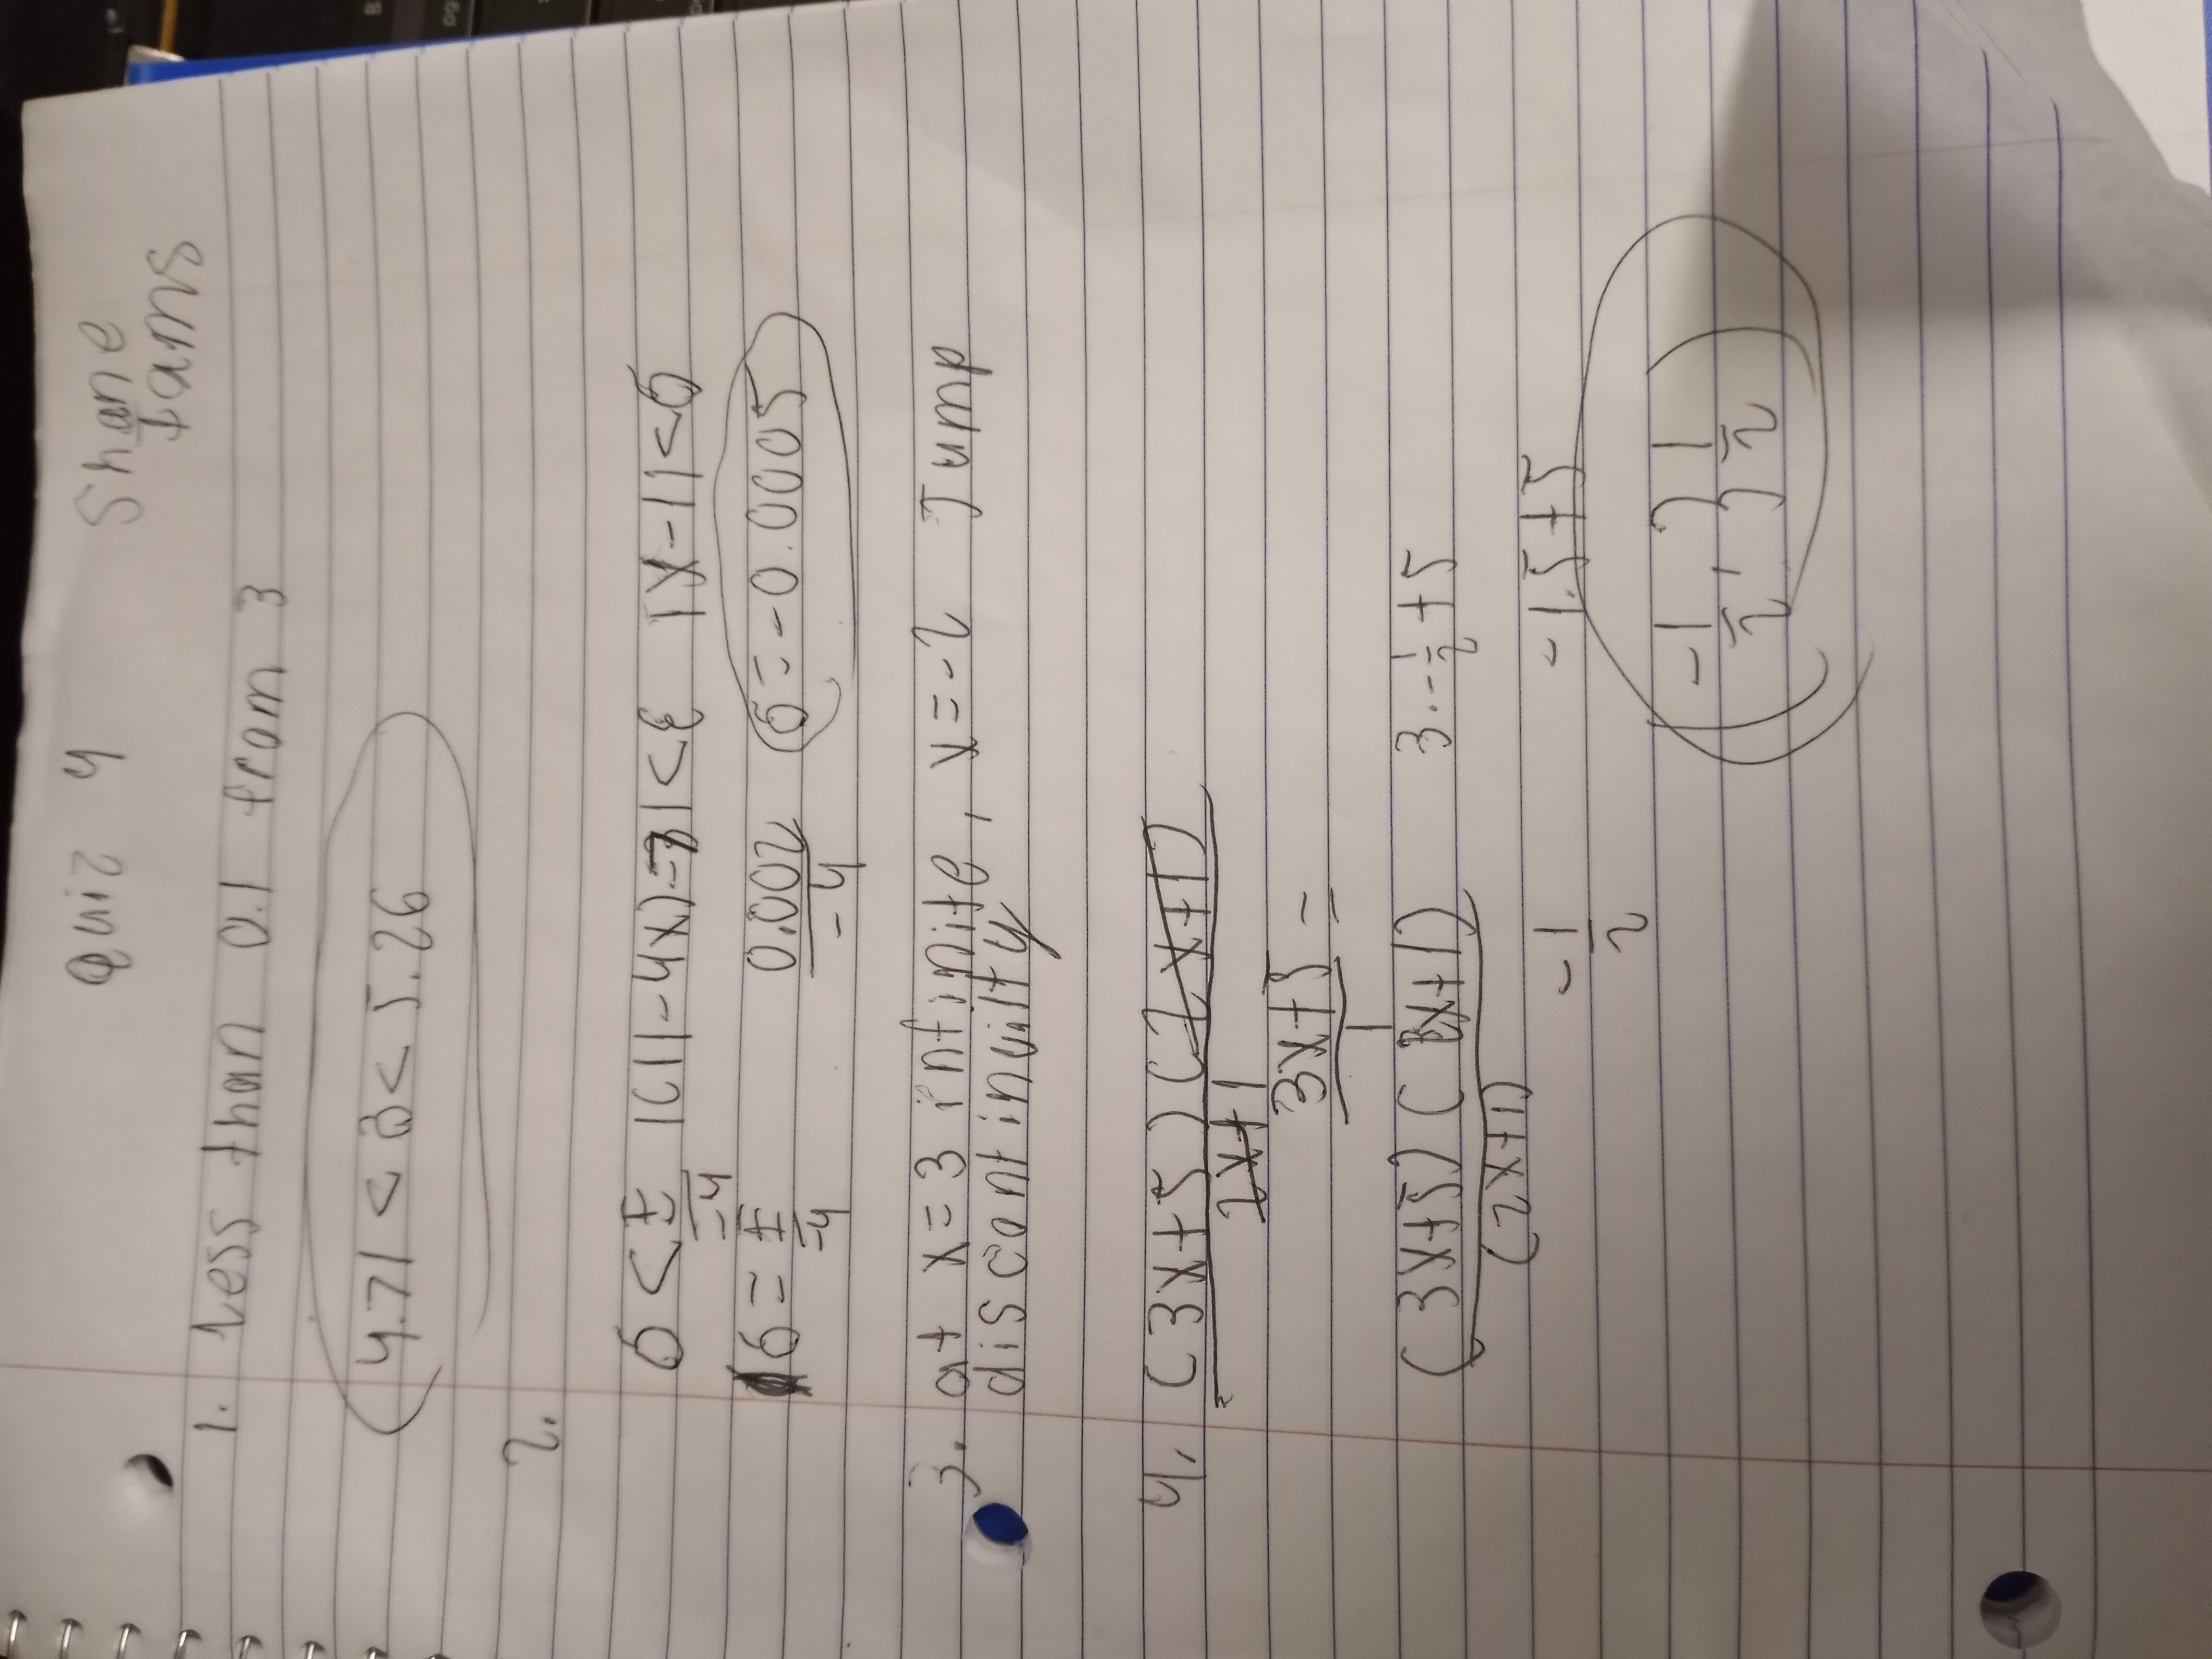 Quiz 4 Shane
Stams
1. Less than 0.1 from 3
4.71 < a < 5.26
2.
δ < ε/-4 |(11-4x)-7| < ε |x-1| < δ
δ = ε/-4 0.002/-4 δ = -0.0005
3. at x = 3 infinite, x = -2 Jump
discontinuity
4. (3x+5)(2x+1)
2x+1
3x+5 =
1
(3x+5)(2x+1) 3·-1/2+5
(2x+1)
-1/2 -1.5+5
(-1/2, 3 1/2)